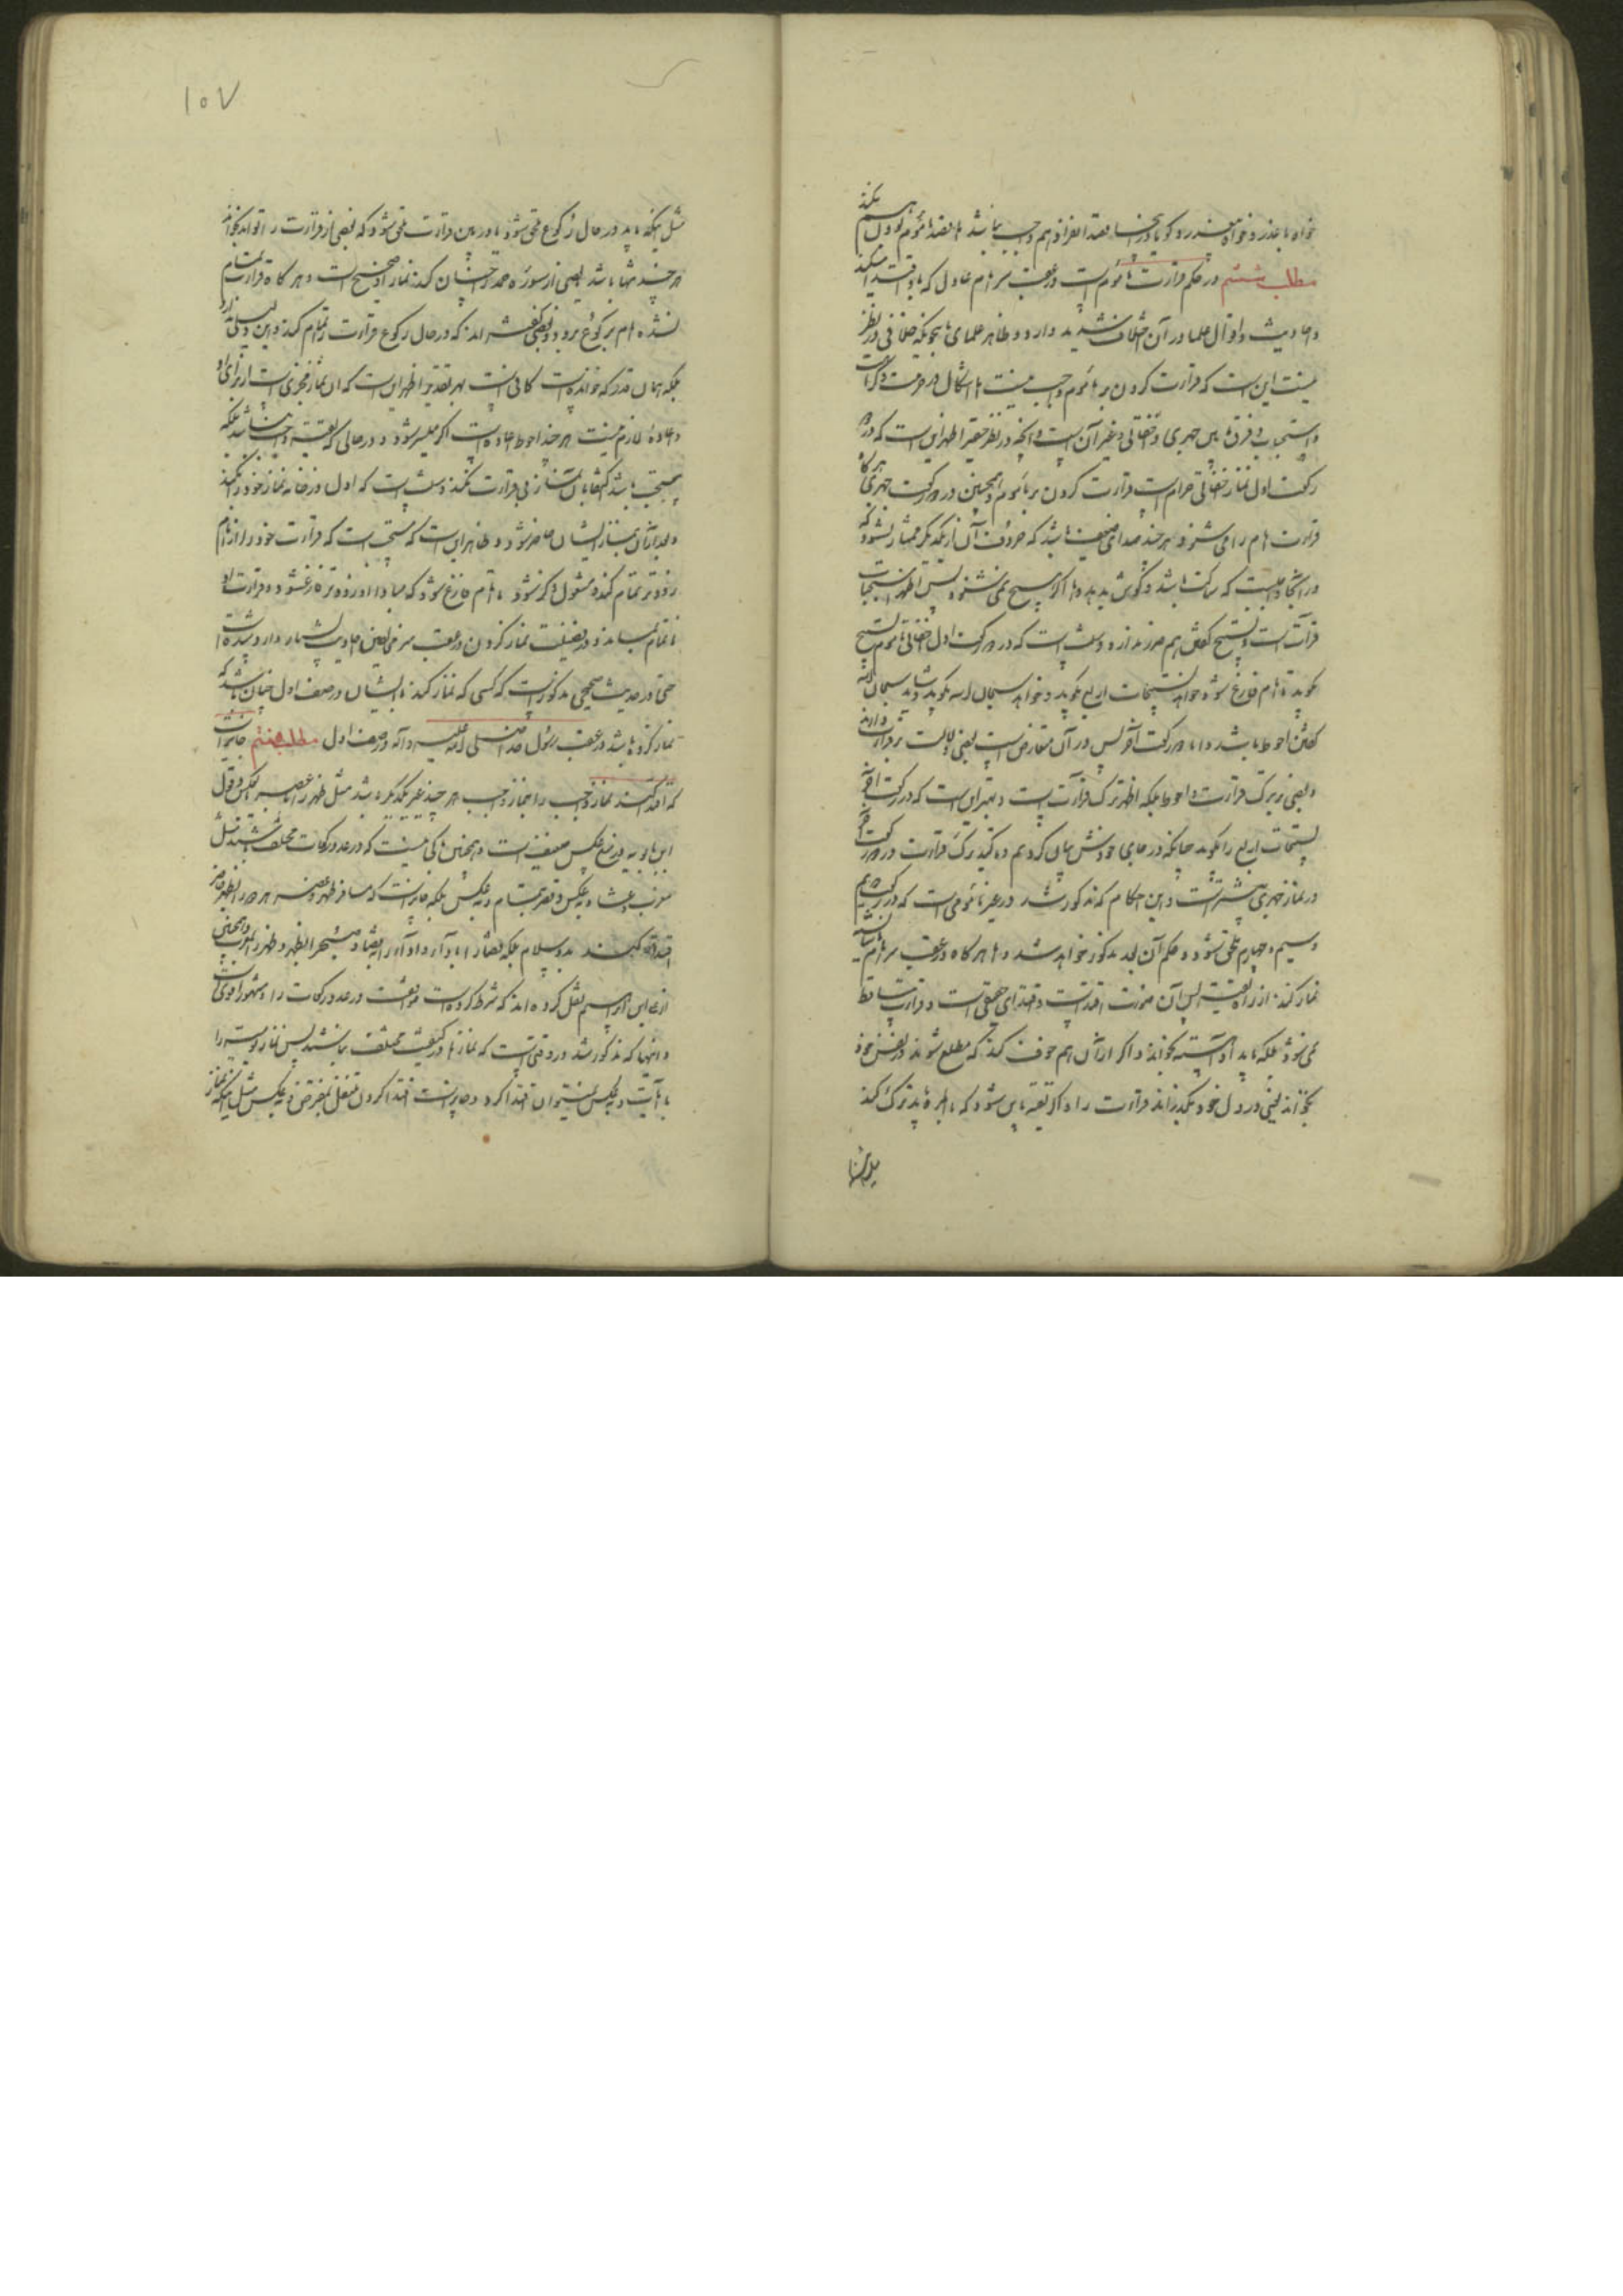 خواه با عذر و خواه بی عذر و گویا در اینجا قصد انفراد هم واجب نباشد اما قصد مأموم بودن هم نکند
مطلب ششم در حکم قرائت مأموم است در عقب سر امام عادل که باو اقتدا میکند
و احادیث و اقوال علما در آن اختلاف شدید دارد و ظاهر علمای ما چونکه خلافی در نظر
نیست این است که قرائت کردن بر مأموم واجب نیست اما اشکال در حرمت و کراهت
و استحباب و فرق ما بین جهری و اخفاتی و غیر آن است و آنچه در نظر حقیر اظهر است این است که در دو
رکعت اول نماز اخفاتی حرام است قرائت کردن بر مأموم و همچنین در دو رکعت جهری هرگاه
قرائت امام را می شنود هر چند صدای ضعیف باشد که حروف آن از یکدیگر ممتاز نشود که
در اینجا واجبست که ساکت باشد و گوش بدهد و اما اگر هیچ نمی شنود پس اظهر استحباب
قرائت است و تسبیح گفتن هم ضرر ندارد و سنت است که در دو رکعت اول اخفاتی مأموم تسبیح
بگوید تا امام فارغ شود خواهد تسبیحات اربع بگوید و خواهد سبحان الله بگوید و شاید سبحان الله
گفتن احوط باشد و اما دو رکعت آخر پس در آن متعارض است بعضی دلالت بر قرائت دارند
و بعضی بر ترک قرائت و احوط بلکه اظهر ترک قرائت است و بهتر این است که در دو رکعت آخر
تسبیحات اربع را بگوید چنانکه در جای خودش بیان کردیم و تأکید ترک قرائت در دو رکعت آخر
در نماز جهری بیشتر است و این احکام که مذکور شد در غیر مأمومی است که در رکعت دویم
و سیم و چهارم ملحق شود و حکم آن بعد مذکور خواهد شد و اما هرگاه در عقب سر امام
نماز کند از راه تقیه پس آن صورت اقتداست و اقتدای حقیقی نیست و قرائت ساقط
نمی شود بلکه باید آهسته بخواند و اگر از آن هم خوف کند که مطلع شوند در نفس خود
بخواند یعنی در دل خود بگذراند قرائت را و اگر تقیه باین شود که بالمره باید ترک کند
مثل اینکه
مثل اینکه باید در حال رکوع ملحق شود یا در بین قرائت ملحق شود که بعضی از قرائت را تواند بخواند
هر چند تنها باشد بعضی از سوره حمد چنان کند نماز او صحیح است و هر گاه قرائت تمام
نشده امام برکوع برود بعضی گفته اند که در حال رکوع قرائت را تمام کند و این دلیلی ندارد
بلکه همان قدر که خوانده است کافی است بهر تقدیر اظهر این است که آن نماز مجزی است از برای او
و اعاده لازم نیست هر چند احوط اعاده است اگر میسر شود و در حالی که تقیه واجب نباشد بلکه
مستحب باشد اکتفا بآن نماز بی قرائت نکند و سنت است که اول در خانه نماز خود را بکند
و بعد از آن بنماز ایشان حاضر شود و ظاهر این است که مستحب است که قرائت خود را از امام
زودتر تمام کند و مشغول ذکر شود تا امام فارغ شود که مبادا او زودتر فارغ شود و قرائت او
ناتمام بماند و در فضیلت نماز کردن در عقب سر مخالفین احادیث بسیار وارد شده است
حتی در حدیث صحیحی مذکور است که کسی که نماز کند با ایشان در صف اول چنان باشد که
نماز کرده باشد در عقب رسول خدا صلی الله علیه و آله در صف اول مطلب هفتم جایز است
که اقتدا کنند نماز واجب را بنماز واجب هر چند غیر یکدیگر باشد مثل ظهر را بعصر و بعکس و قول
ابن بابویه در منع عکس ضعیف است و همچنین باکی نیست که در عدد رکعات مختلف باشند مثل
مغرب و عشا و بعکس و قصر بتمام و بعکس بلکه جایز است که مسافر ظهر و عصر هر دو را بظهر حاضر
اقتدا کند بدو سلام بلکه قضا را بادا و ادا را بقضا و صبح را بظهر و ظهر را بصبح و همچنین
از ابن بابویه هم نقل کرده اند که شرط کرده است موافقت در عدد رکعات را و مشهور اقوی است
و اینها که مذکور شد در وقتی است که نماز ها در کیفیت مختلف نباشند پس نماز یومیه را
بآیات و بعکس نمیتوان اقتدا کرد و جایز است اقتدا کردن متنفل بمفترض و بعکس مثل اینکه نماز
۱۰۷